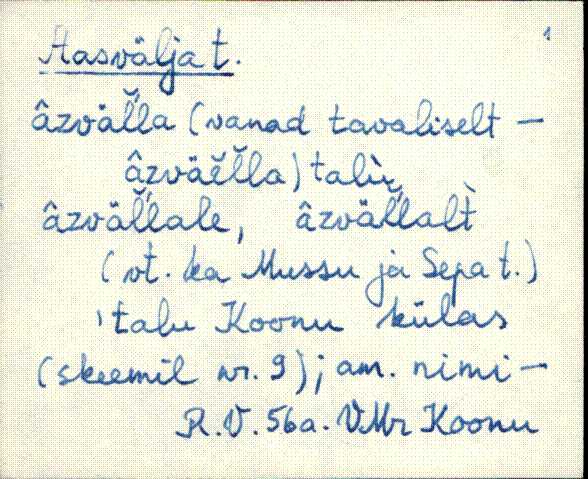 Aasvälja t. 1
âzväl̆l̆a (vanad tavaliselt –
âzväĕl̆l̆a) talù,
âzväl̆l̆ale, âzväl̆l̆alt̀
(vt. ka Mussu ja Sepa t.)
'talu Koonu külas
(skeemil nr. 9); am. nimi –
R.V. 56a. VMr Koonu